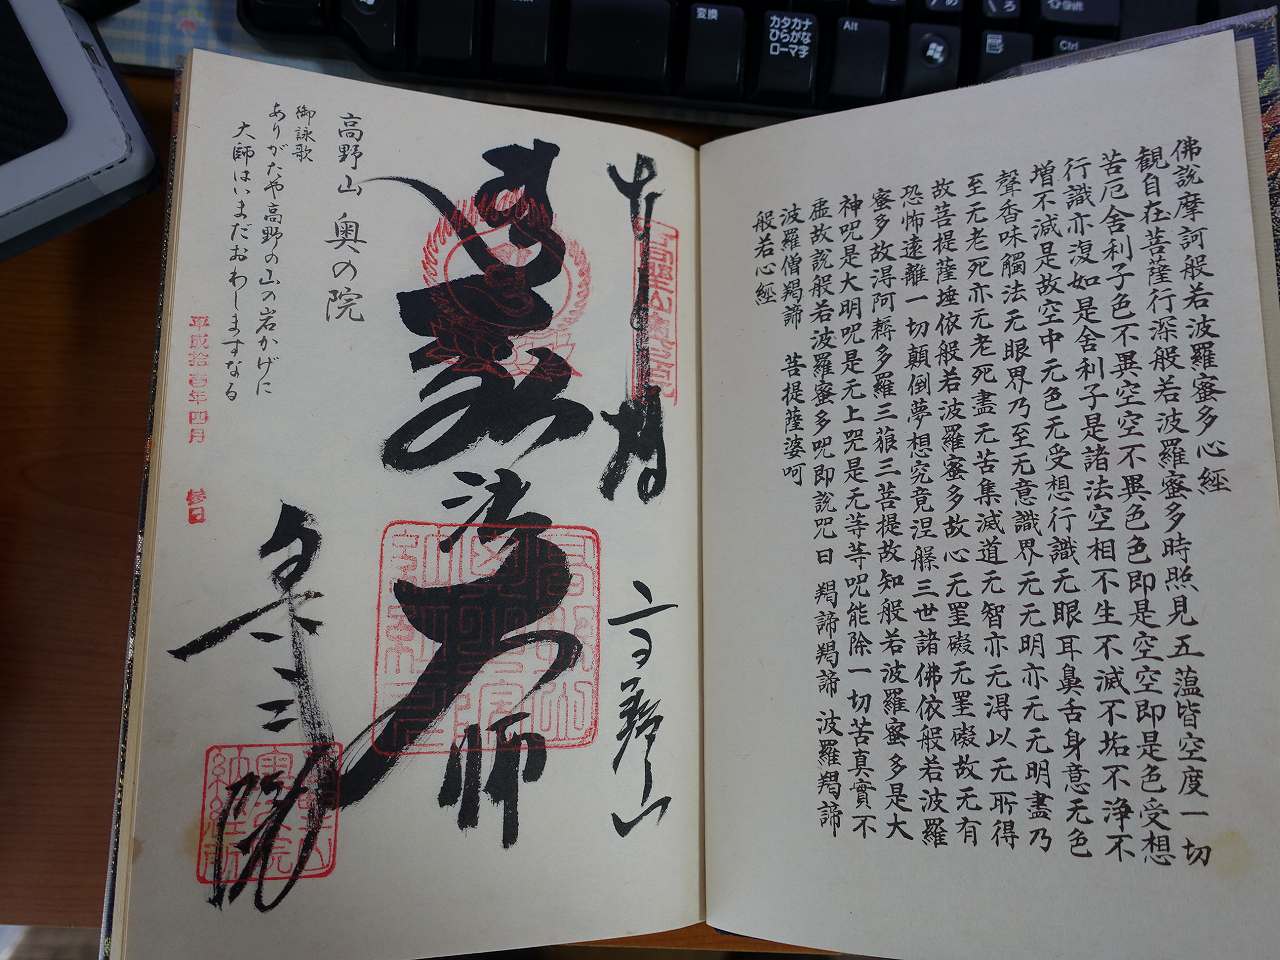 佛說摩訶般若波羅蜜多心經
観自在菩薩行深般若波羅蜜多時照見五薀皆空度一切
苦厄舍利子色不異空空不異色色即是空空即是色受想
行識亦復如是舍利子是諸法空相不生不滅不垢不浄不
増不減是故空中无色无受想行識无眼耳鼻舌身意无色
聲香味觸法无眼界乃至无意識界无无明亦无无明盡乃
至无老死亦无老死盡无苦集滅道无智亦无得以无所得
故菩提薩埵依般若波羅蜜多故心无罣礙无罣礙故无有
恐怖遠離一切顛倒夢想究竟涅槃三世諸佛依般若波羅
蜜多故得阿耨多羅三藐三菩提故知般若波羅蜜多是大
神呪是大明呪是无上呪是无等等呪能除一切苦真實不
虚故説般若波羅蜜多呪即説呪曰 羯諦羯諦 波羅羯諦
波羅僧羯諦 菩提薩婆呵
般若心經
高野山
弘法大師
高野山 奥の院
御詠歌
ありがたや高野の山の岩かげに
大師はいまだおわしますなる
年四月
変換
カタカナ
ひらがな
ローマ字
Alt
Ctrl
Shift